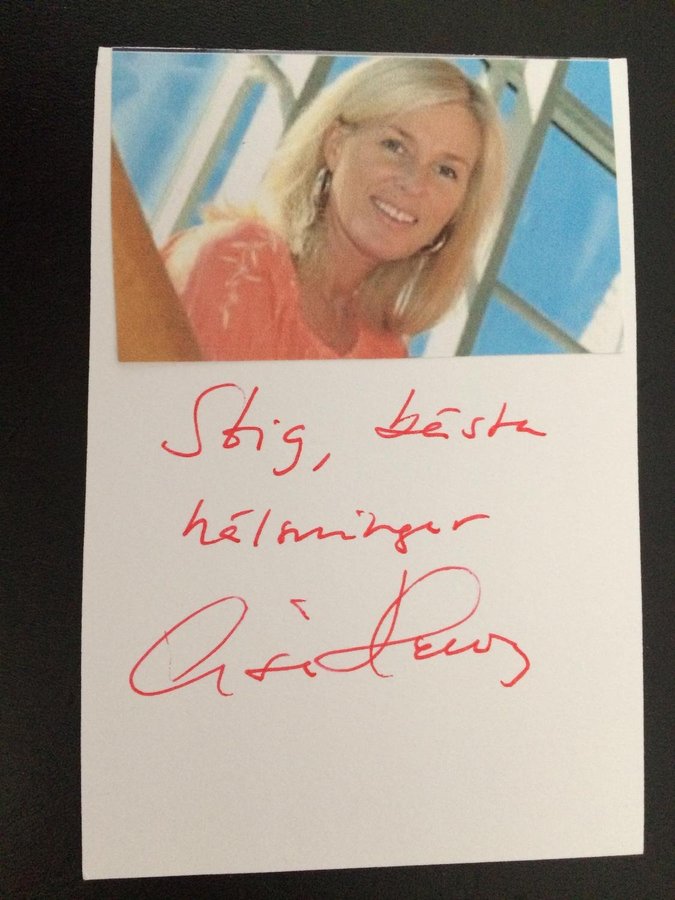 Stig, bästa
hälsningar